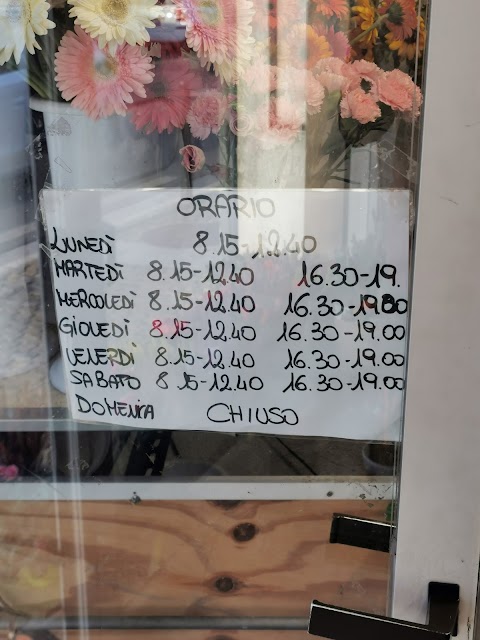 ORARIO
LUNEDÌ 8.15-12.40
MARTEDÌ 8.15-12.40 16.30-19.
MERCOLEDÌ 8.15-12.40 16.30-19.00
GIOVEDÌ 8.15-12.40 16.30-19.00
VENERDÌ 8.15-12.40 16.30-19.00
SABATO 8.15-12.40 16.30-19.00
DOMENICA CHIUSO